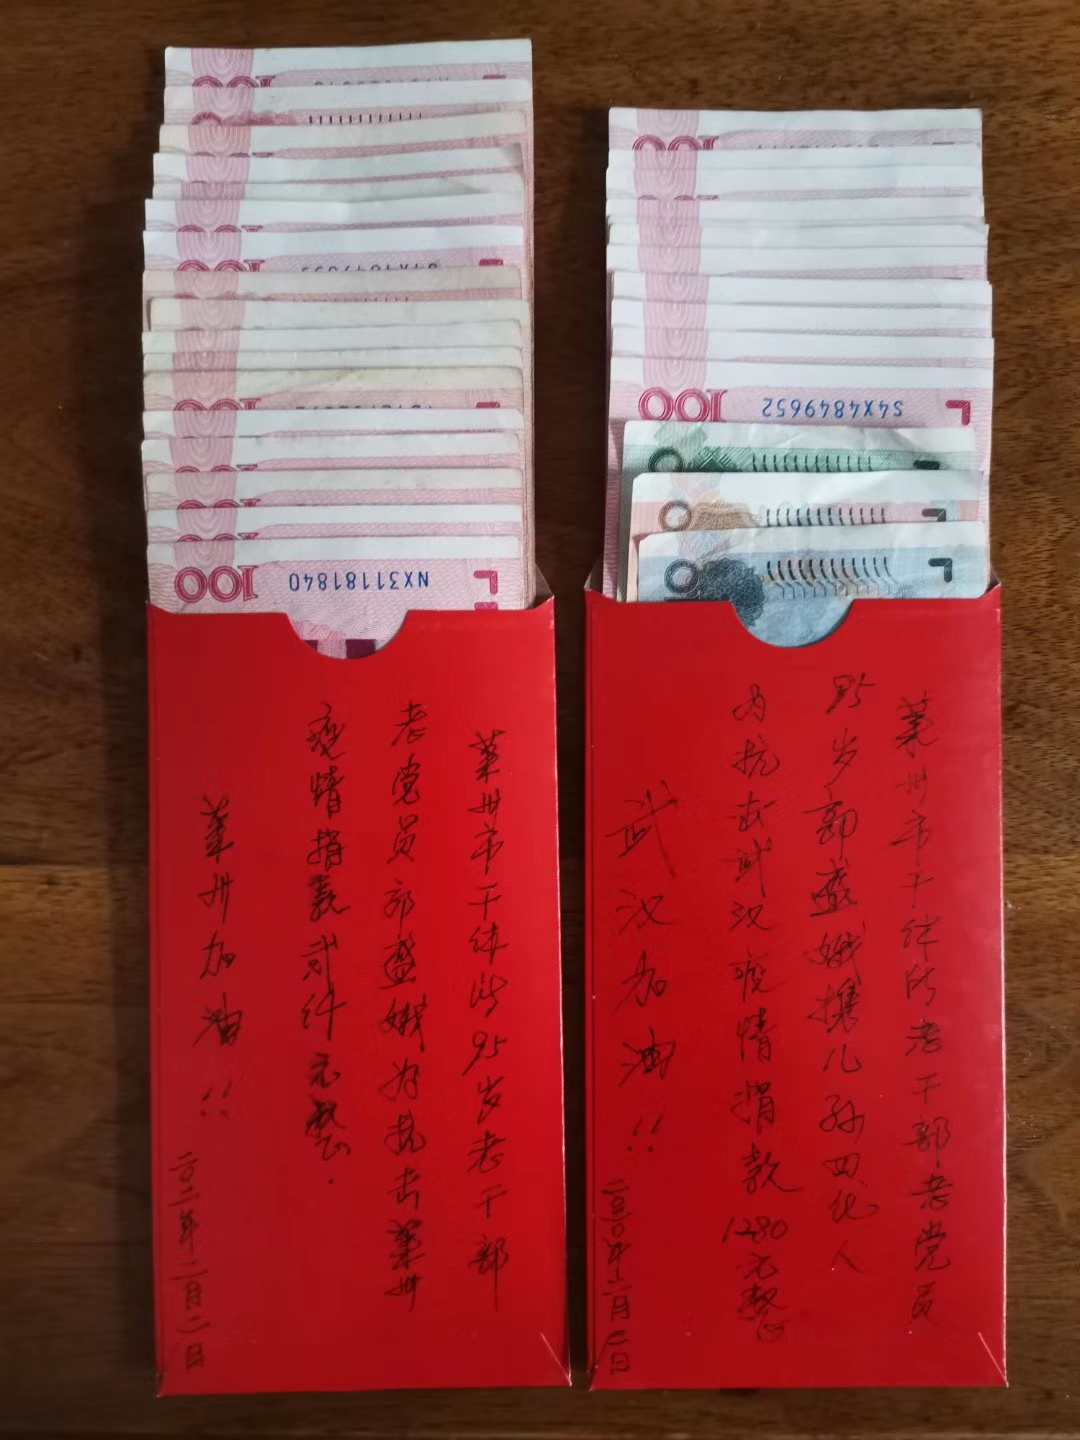 100
S4X4849652
100
NX31181840
莱州市干休所老干部老党员
郭盛娥携儿孙四代人
为抗击武汉疫情捐款1280元整
武汉加油!!
莱州市干休所95岁老干部
老党员郭盛娥为抗击莱州
疫情捐款贰仟元整.
莱州加油!!
二〇二一年二月二日